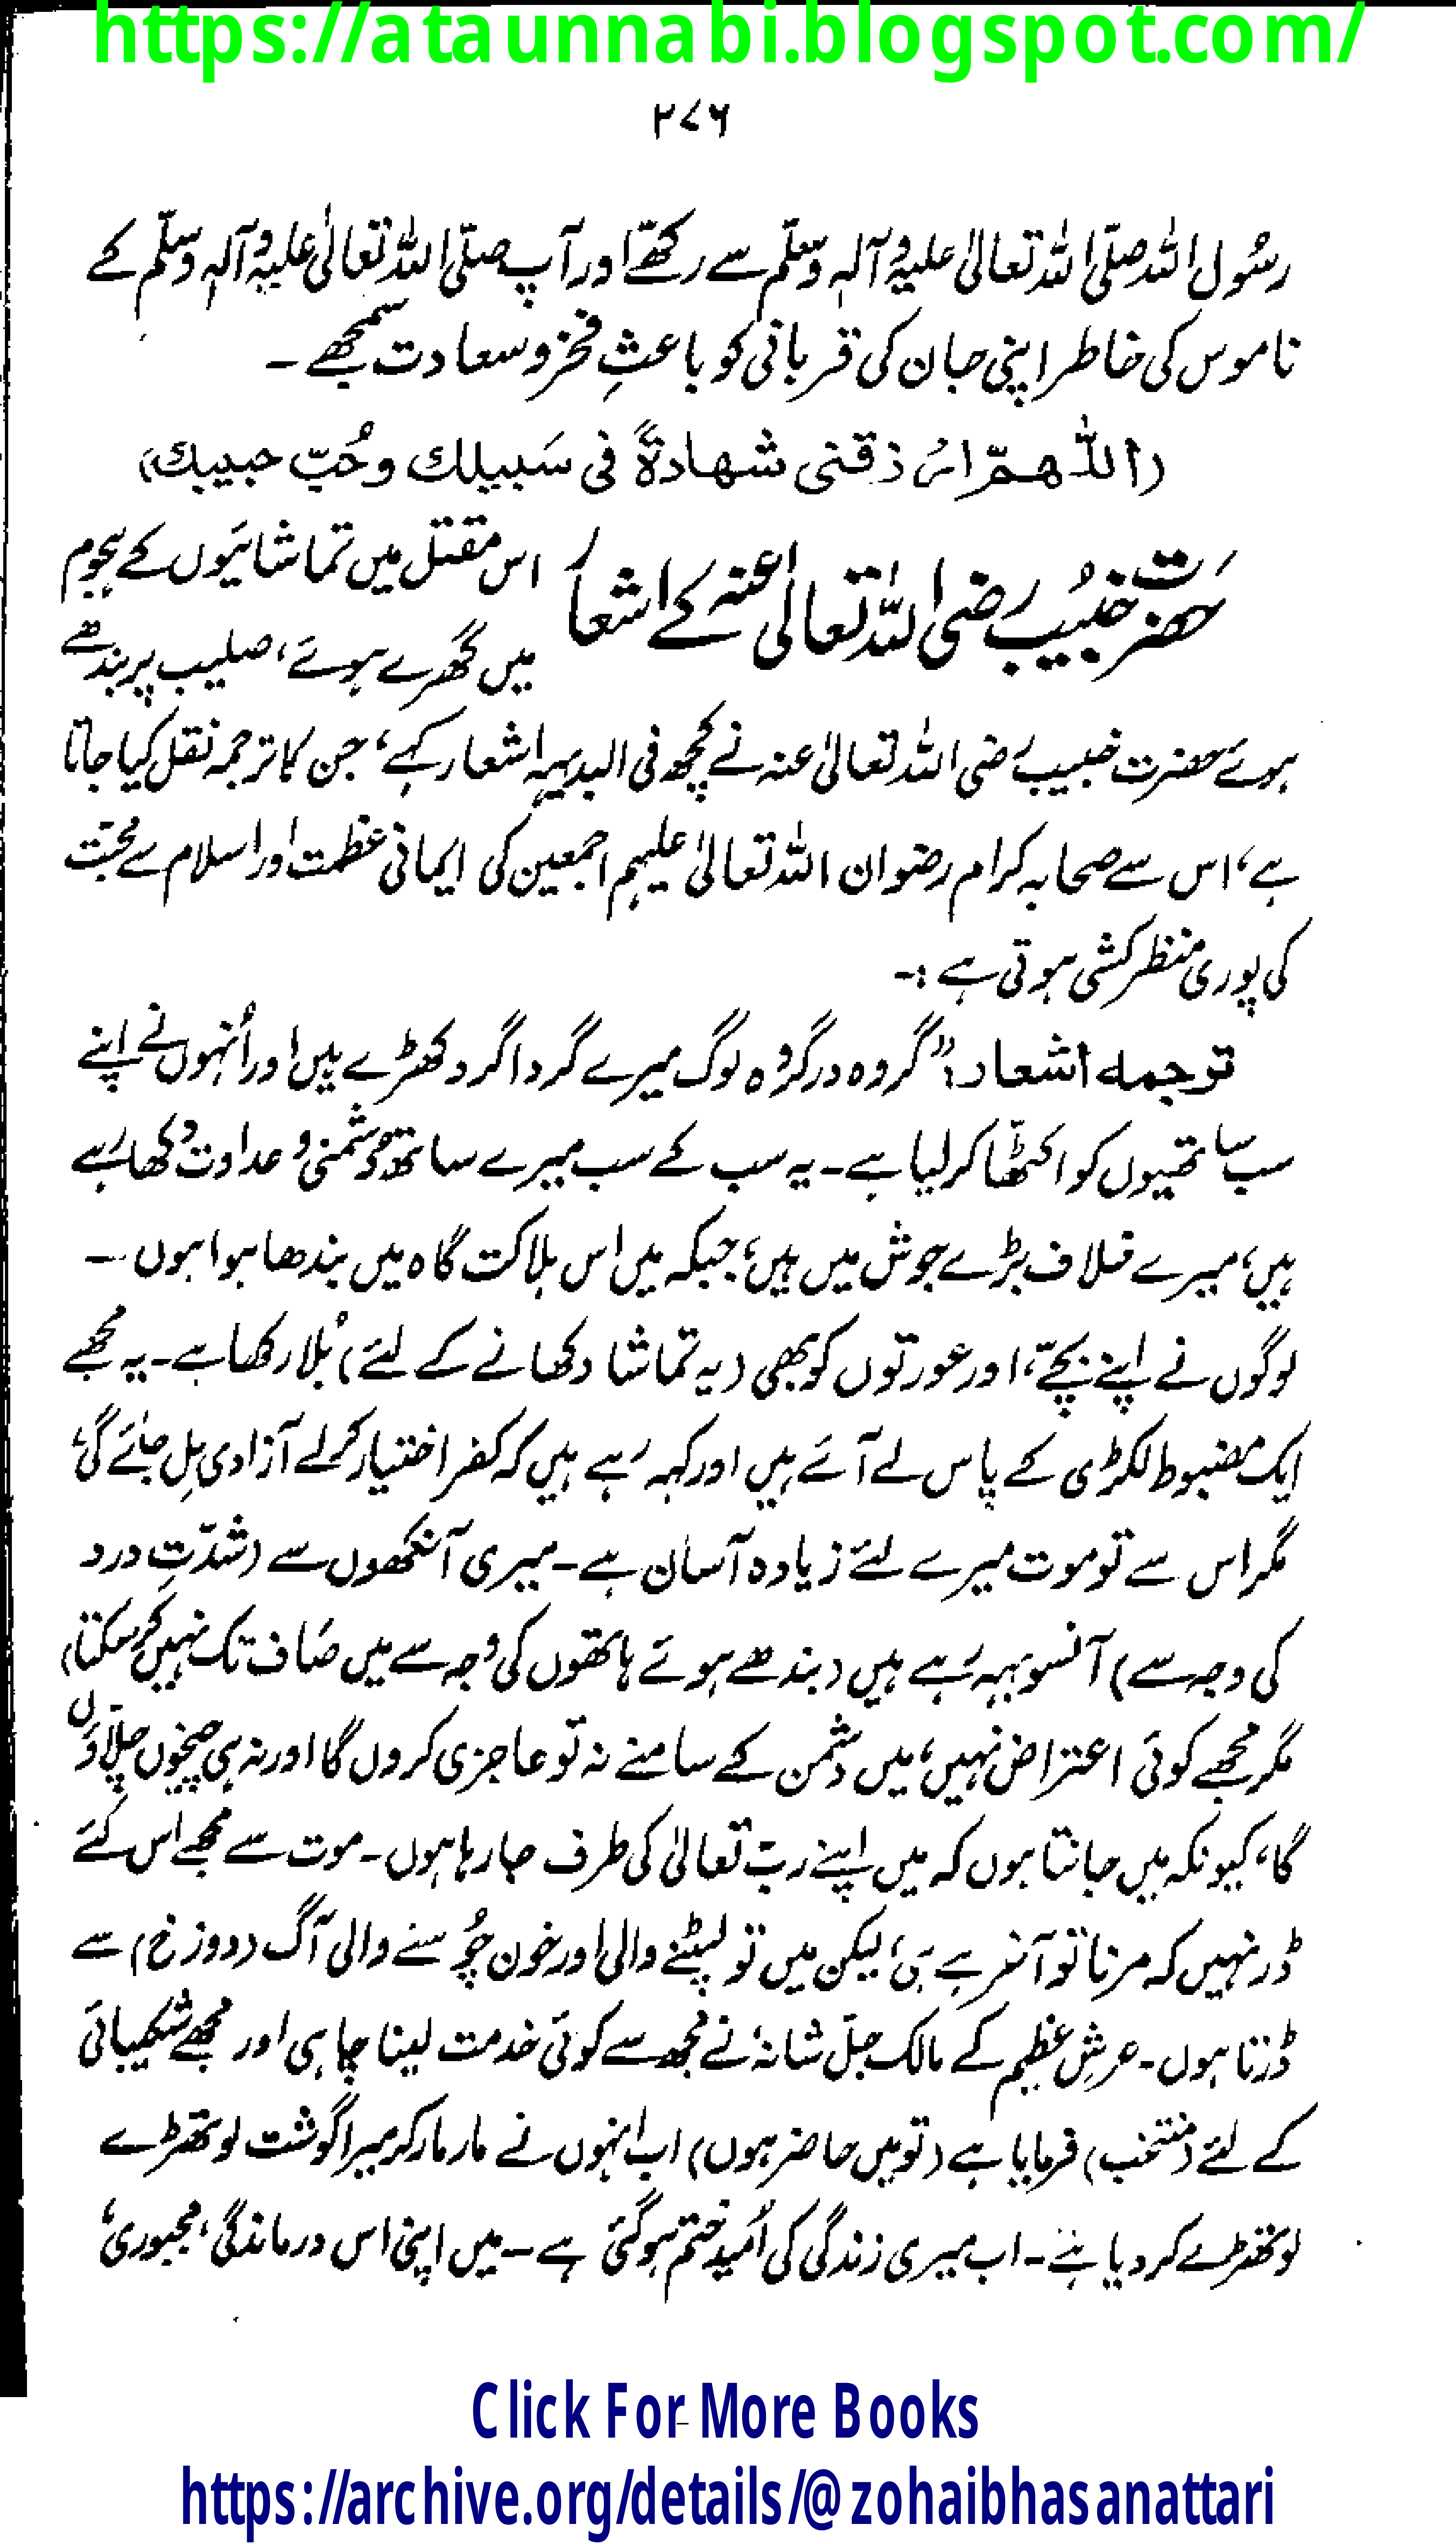 https://ataunnabi.blogspot.com/
۲۷۶
رسُول اللہ صلّی اللہ تعالیٰ علیہ وآلہٖ وسلّم سے رکھّے اور آپ صلّی اللہ تعالیٰ علیہ وآلہٖ وسلّم کے
ناموس کی خاطر اپنی جان کی قربانی کو باعثِ فخر و سعادت سمجھے ۔
(اَللّٰھمّ ارْزقنی شھادةً فی سَبیلك وحُبّ حبیبك)
حضرت خبُیب رضی اللہ تعالیٰ عنہ کے اشعار
اس مقتل میں تماشائیوں کے ہجوم
میں گھرے ہوئے، صلیب پر بندھے
ہوئے حضرت خبیب رضی اللہ تعالیٰ عنہ نے کچھ فی البدیہہ اشعار کہے، جن کا ترجمہ نقل کیا جاتا
ہے، اس سے صحابہ کرام رضوان اللہ تعالیٰ علیہم اجمعین کی ایمانی عظمت اور اسلام سے محبّت
کی پوری منظر کشی ہوتی ہے :-
ترجمہ اشعار: "گروہ در گروہ لوگ میرے گرد اگرد کھڑے ہیں اور اُنہوں نے اپنے
سب ساتھیوں کو اکٹھّا کر لیا ہے۔ یہ سب کے سب میرے ساتھ دُشمنی و عداوت دکھا رہے
ہیں، میرے خلاف بڑے جوش میں ہیں، جبکہ میں اس ہلاکت گاہ میں بندھا ہوا ہوں ۔
لوگوں نے اپنے بچّے، اور عورتوں کو بھی (یہ تماشا دکھانے کے لئے) بُلا رکھا ہے۔ یہ مجھے
ایک مضبوط لکڑی کے پاس لے آئے ہیں اور کہہ رہے ہیں کہ کفر اختیار کر لے آزادی مِل جائے گی،
مگر اس سے تو موت میرے لئے زیادہ آسان ہے۔ میری آنکھوں سے (شدّتِ درد
کی وجہ سے) آنسو بہہ رہے ہیں (بندھے ہوئے ہاتھوں کی وجہ سے میں صَاف تک نہیں کر سکتا)
مگر مجھے کوئی اعتراض نہیں، میں دشمن کے سامنے نہ تو عاجزی کروں گا اور نہ ہی چیخوں چلّاؤں
گا، کیونکہ میں جانتا ہوں کہ میں اپنے ربّ تعالیٰ کی طرف جا رہا ہوں۔ موت سے مجھے اس لئے
ڈر نہیں کہ مرنا تو آخر ہے ہی، لیکن میں تو لپٹنے والی اور خون چُوسنے والی آگ (دوزخ) سے
ڈرتا ہوں۔ عرشِ عظیم کے مالک جلّ شانہٗ نے مجھ سے کوئی خدمت لینا چاہی اور مجھے شکیبائی
کے لئے (منتخب) فرمایا ہے (تو میں حاضر ہوں) اب انہوں نے مار مار کر میرا گوشت لوتھڑے
لوتھڑے کر دیا ہے۔ اب میری زندگی کی اُمید ختم ہو گئی ہے۔ میں اپنی اس درماندگی، مجبوری،
Click For More Books
https://archive.org/details/@zohaibhasanattari